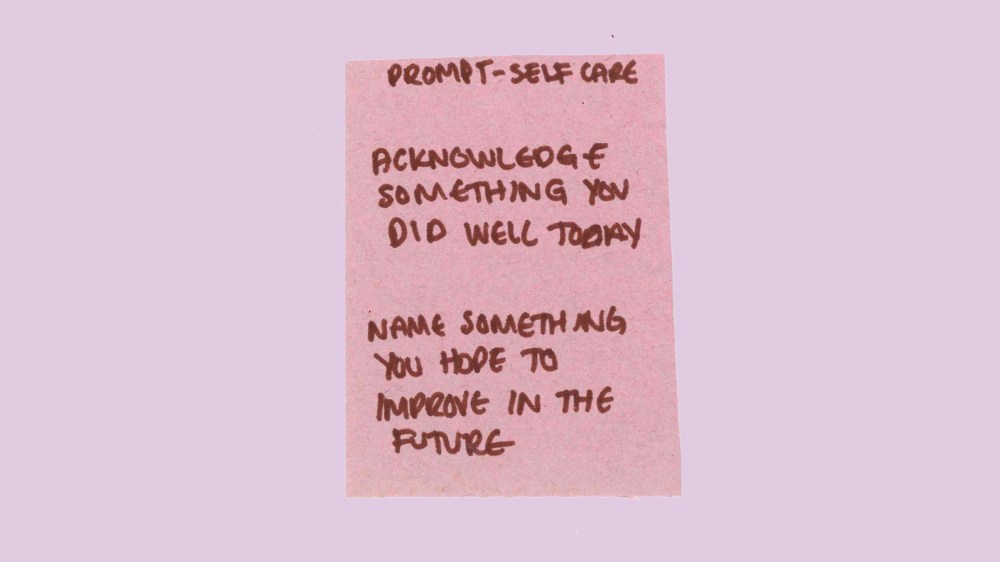 PROMPT-SELF CARE
ACKNOWLEDGE
SOMETHING YOU
DID WELL TODAY
NAME SOMETHING
YOU HOPE TO
IMPROVE IN THE
FUTURE